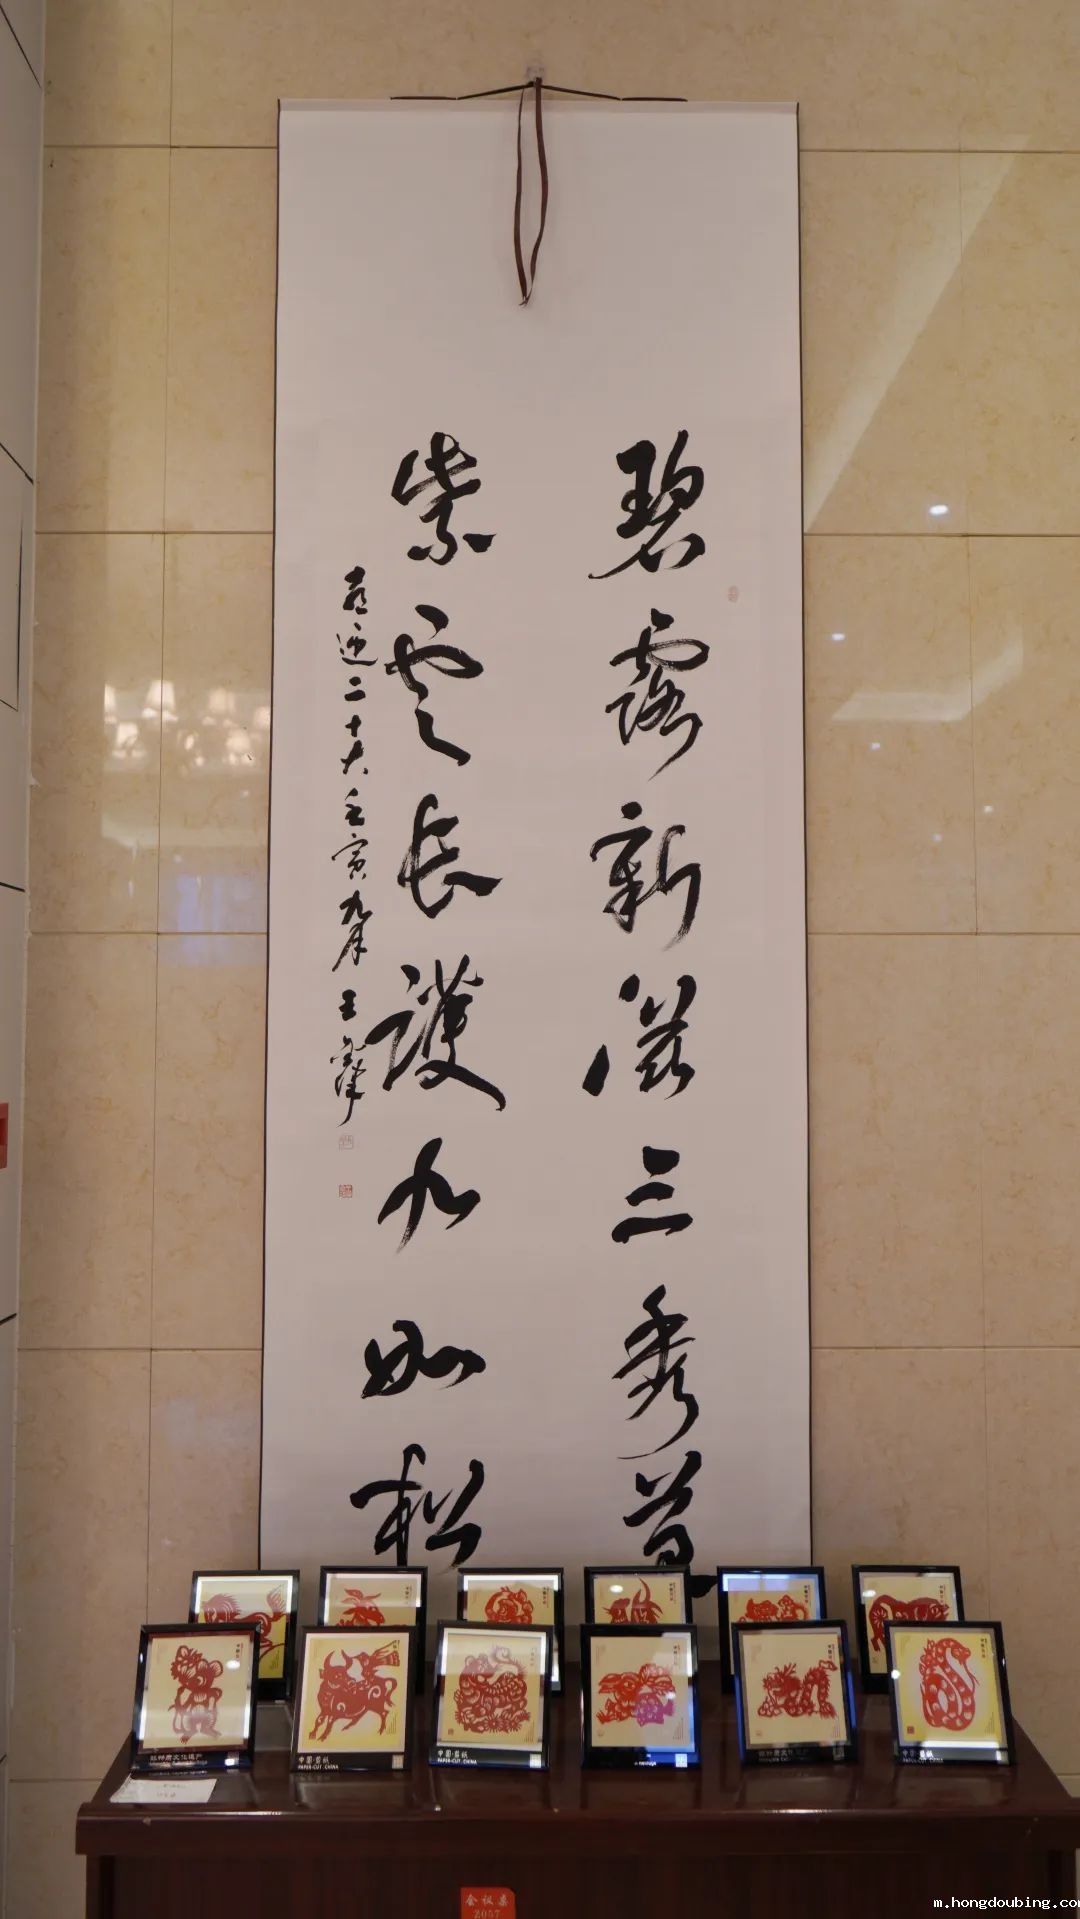 碧露新滋三秀草
紫云长護九如松
喜迎二十大壬寅九月王
非物质文化遗产
中国·剪纸
PAPER-CUT.CHINA
中国·剪纸
PAPER-CUT.CHINA
非物质文化遗产
中国·剪纸
PAPER-CUT.CHINA
会议桌
2057
m.hongdoubing.com